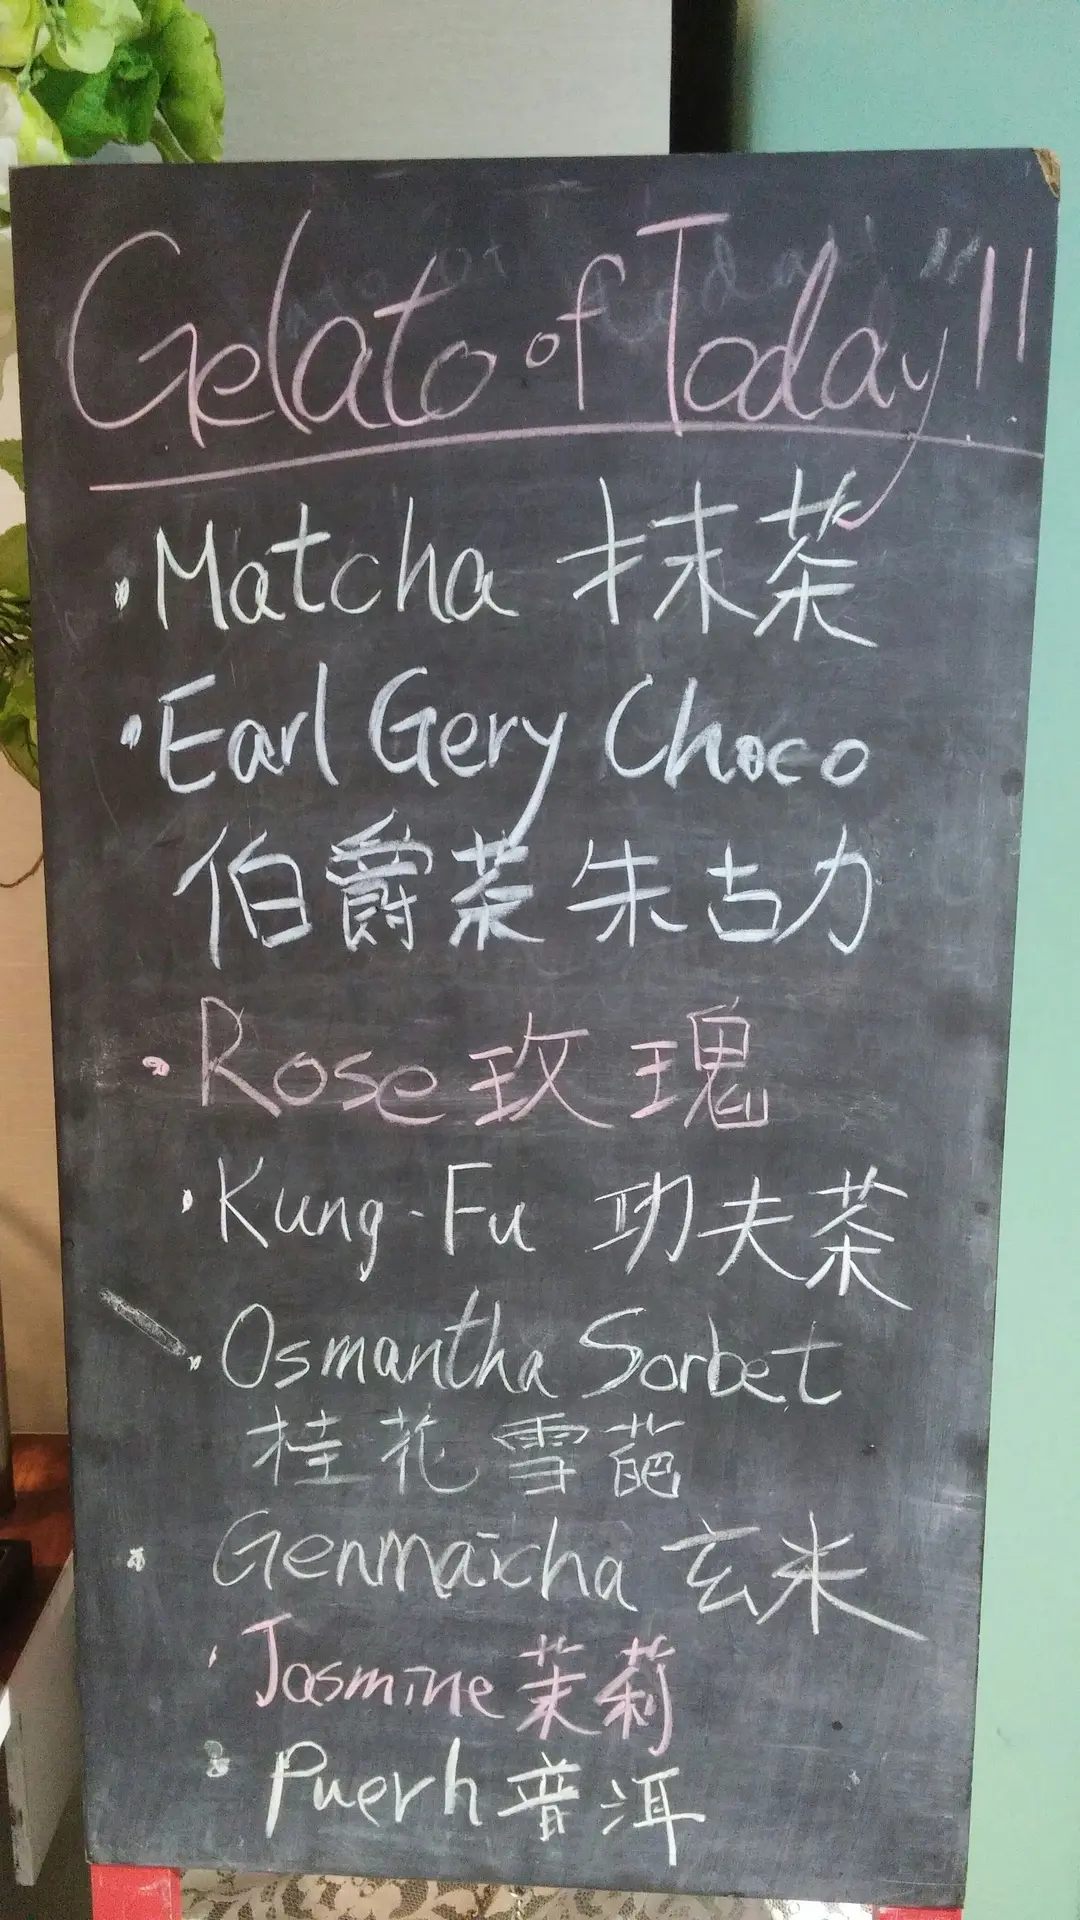 Gelato of Today!!
· Matcha 抹茶
· Earl Gery Choco
伯爵茶朱古力
· Rose 玫瑰
· Kung-Fu 功夫茶
· Osmantha Sorbet
桂花雪葩
· Genmaicha 玄米
· Jasmine 茉莉
· Puerh 普洱